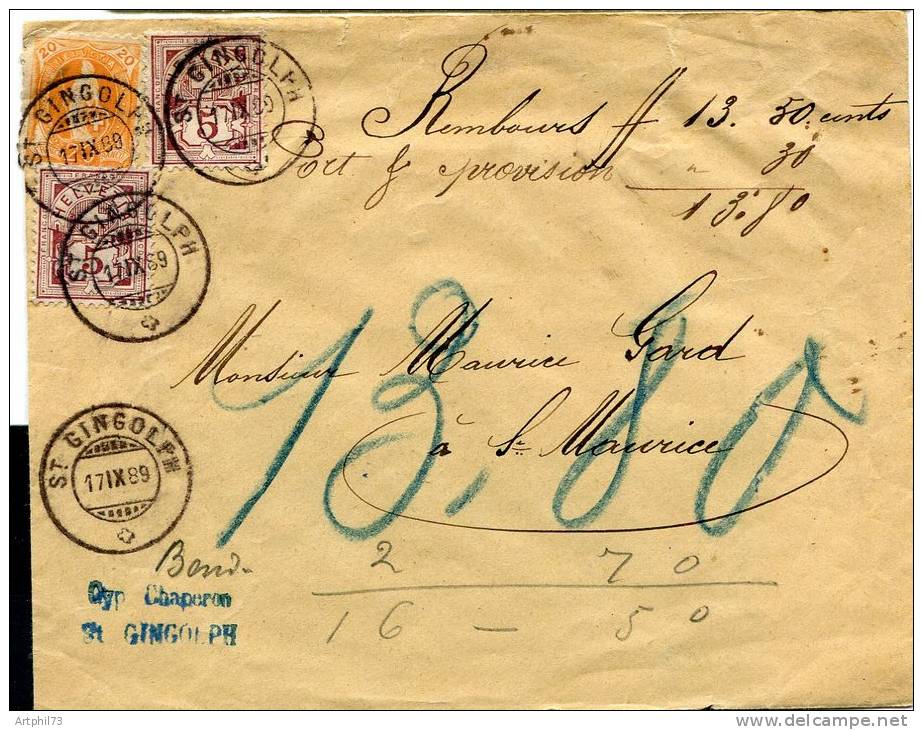 20 20
5
HELVE
5
ST GINGOLPH
17 IX 89
ST GINGOLPH
17 IX 89
ST GINGOLPH
17 IX 89
Rembours ff 13. 50 cents
Port & provision " 30
13.80
13.80
Monsieur Maurice Gard
à St Maurice
ST GINGOLPH
17 IX 89
2 70
16 – 50
Chaperon
St GINGOLPH
Artphil73
www.delcampe.net